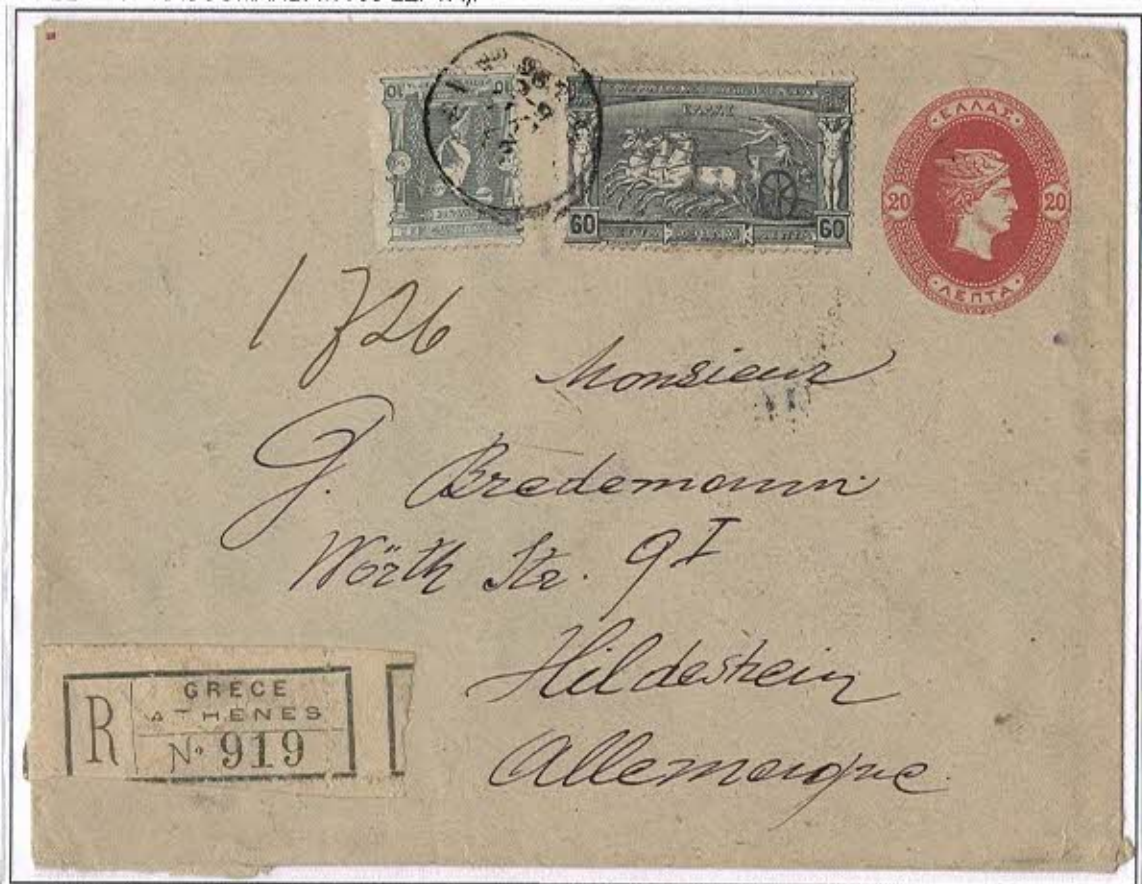 ΕΛΛΑΣ
60 60
10 10
ΕΛΛΑΣ
20 20
ΛΕΠΤΑ
1726
Monsieur
G. Bredemann
Wörth Str. 9I
Hildesheim
Allemagne.
R
GRECE
ATHENES
No 919